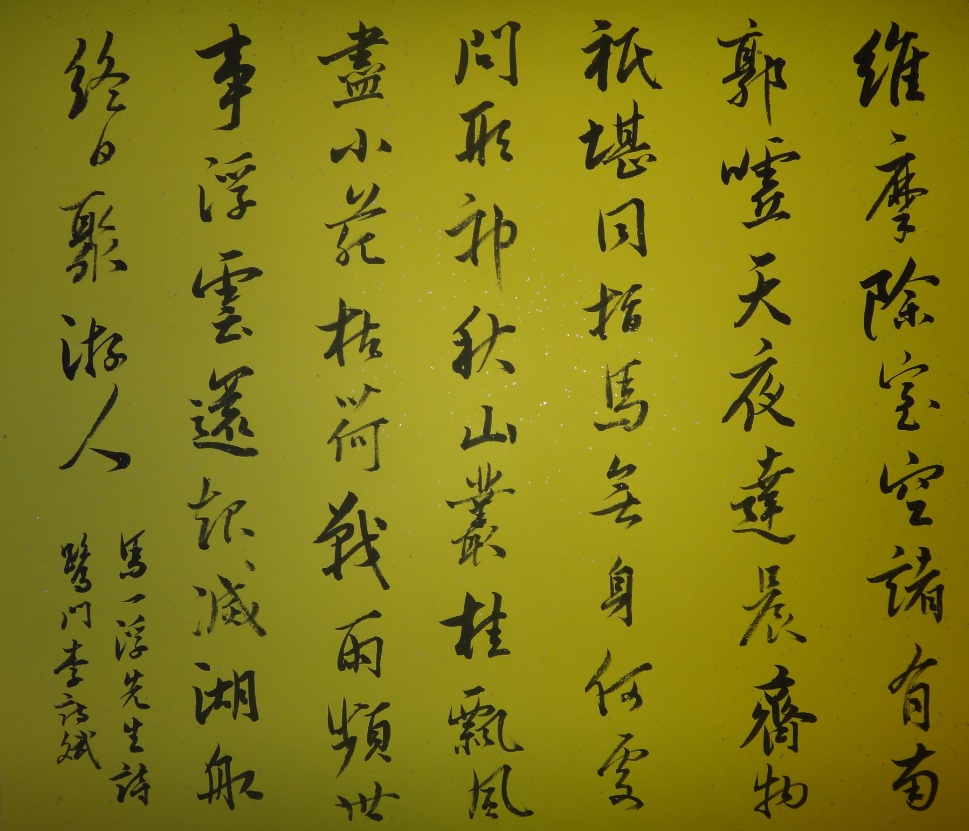 維摩除室空諸有南
郭噓天夜達晨齊物
祇堪同指馬無身何更
問形神秋山叢桂飄風
盡小苑枯荷戰雨頻世
事浮雲還起滅湖船
終日聚游人
馬一浮先生詩
鷺門李